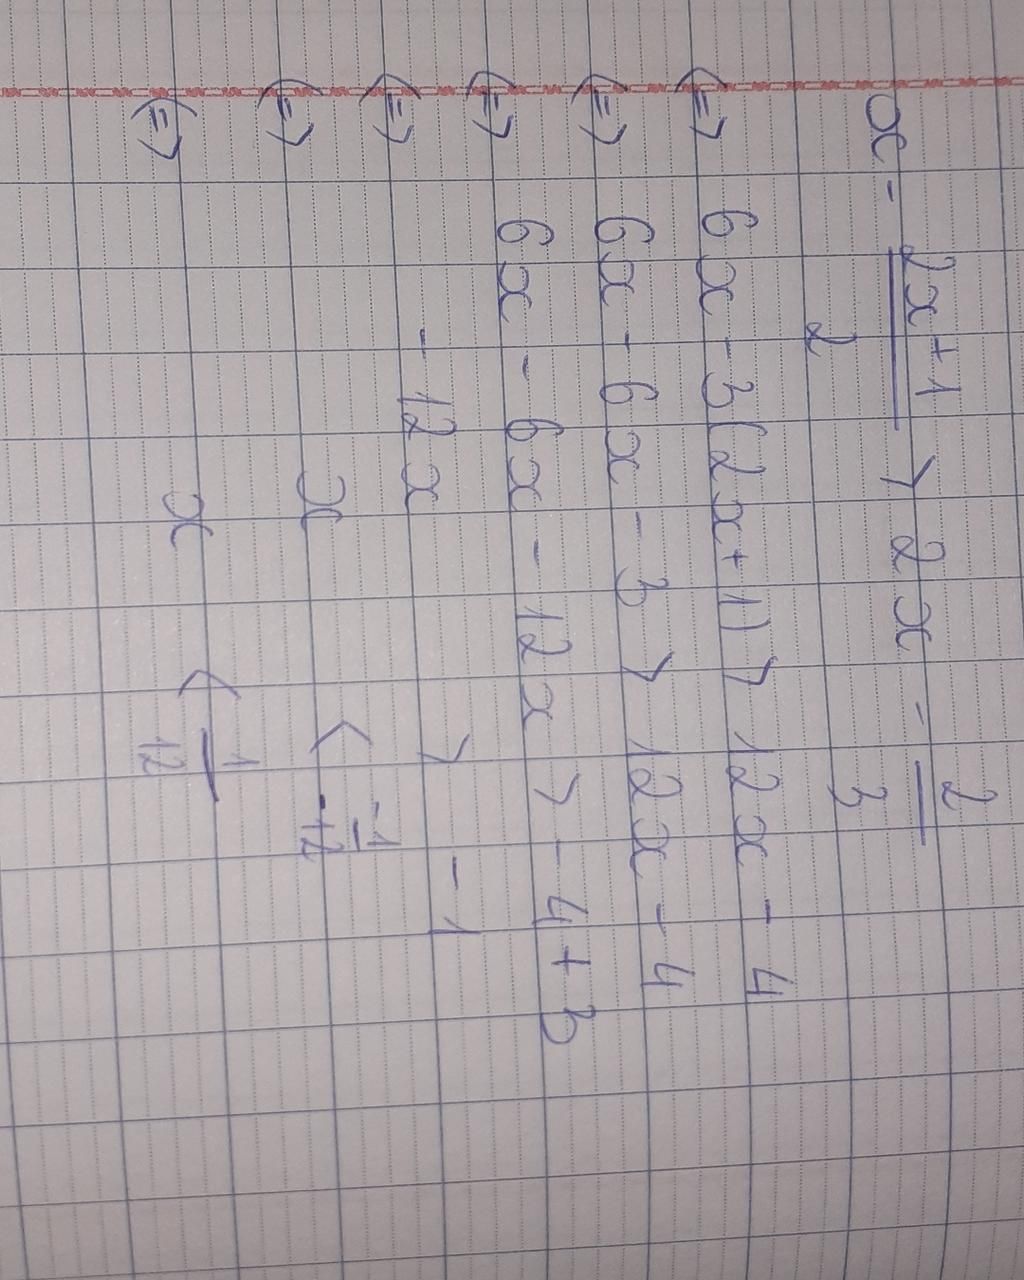 x - \frac{2x+1}{2} > 2x - \frac{2}{3}
⇔ 6x - 3(2x+1) > 12x - 4
⇔ 6x - 6x - 3 > 12x - 4
⇔ 6x - 6x - 12x > -4 + 3
⇔ -12x > -1
⇔ x < \frac{-1}{-12}
⇔ x < \frac{1}{12}